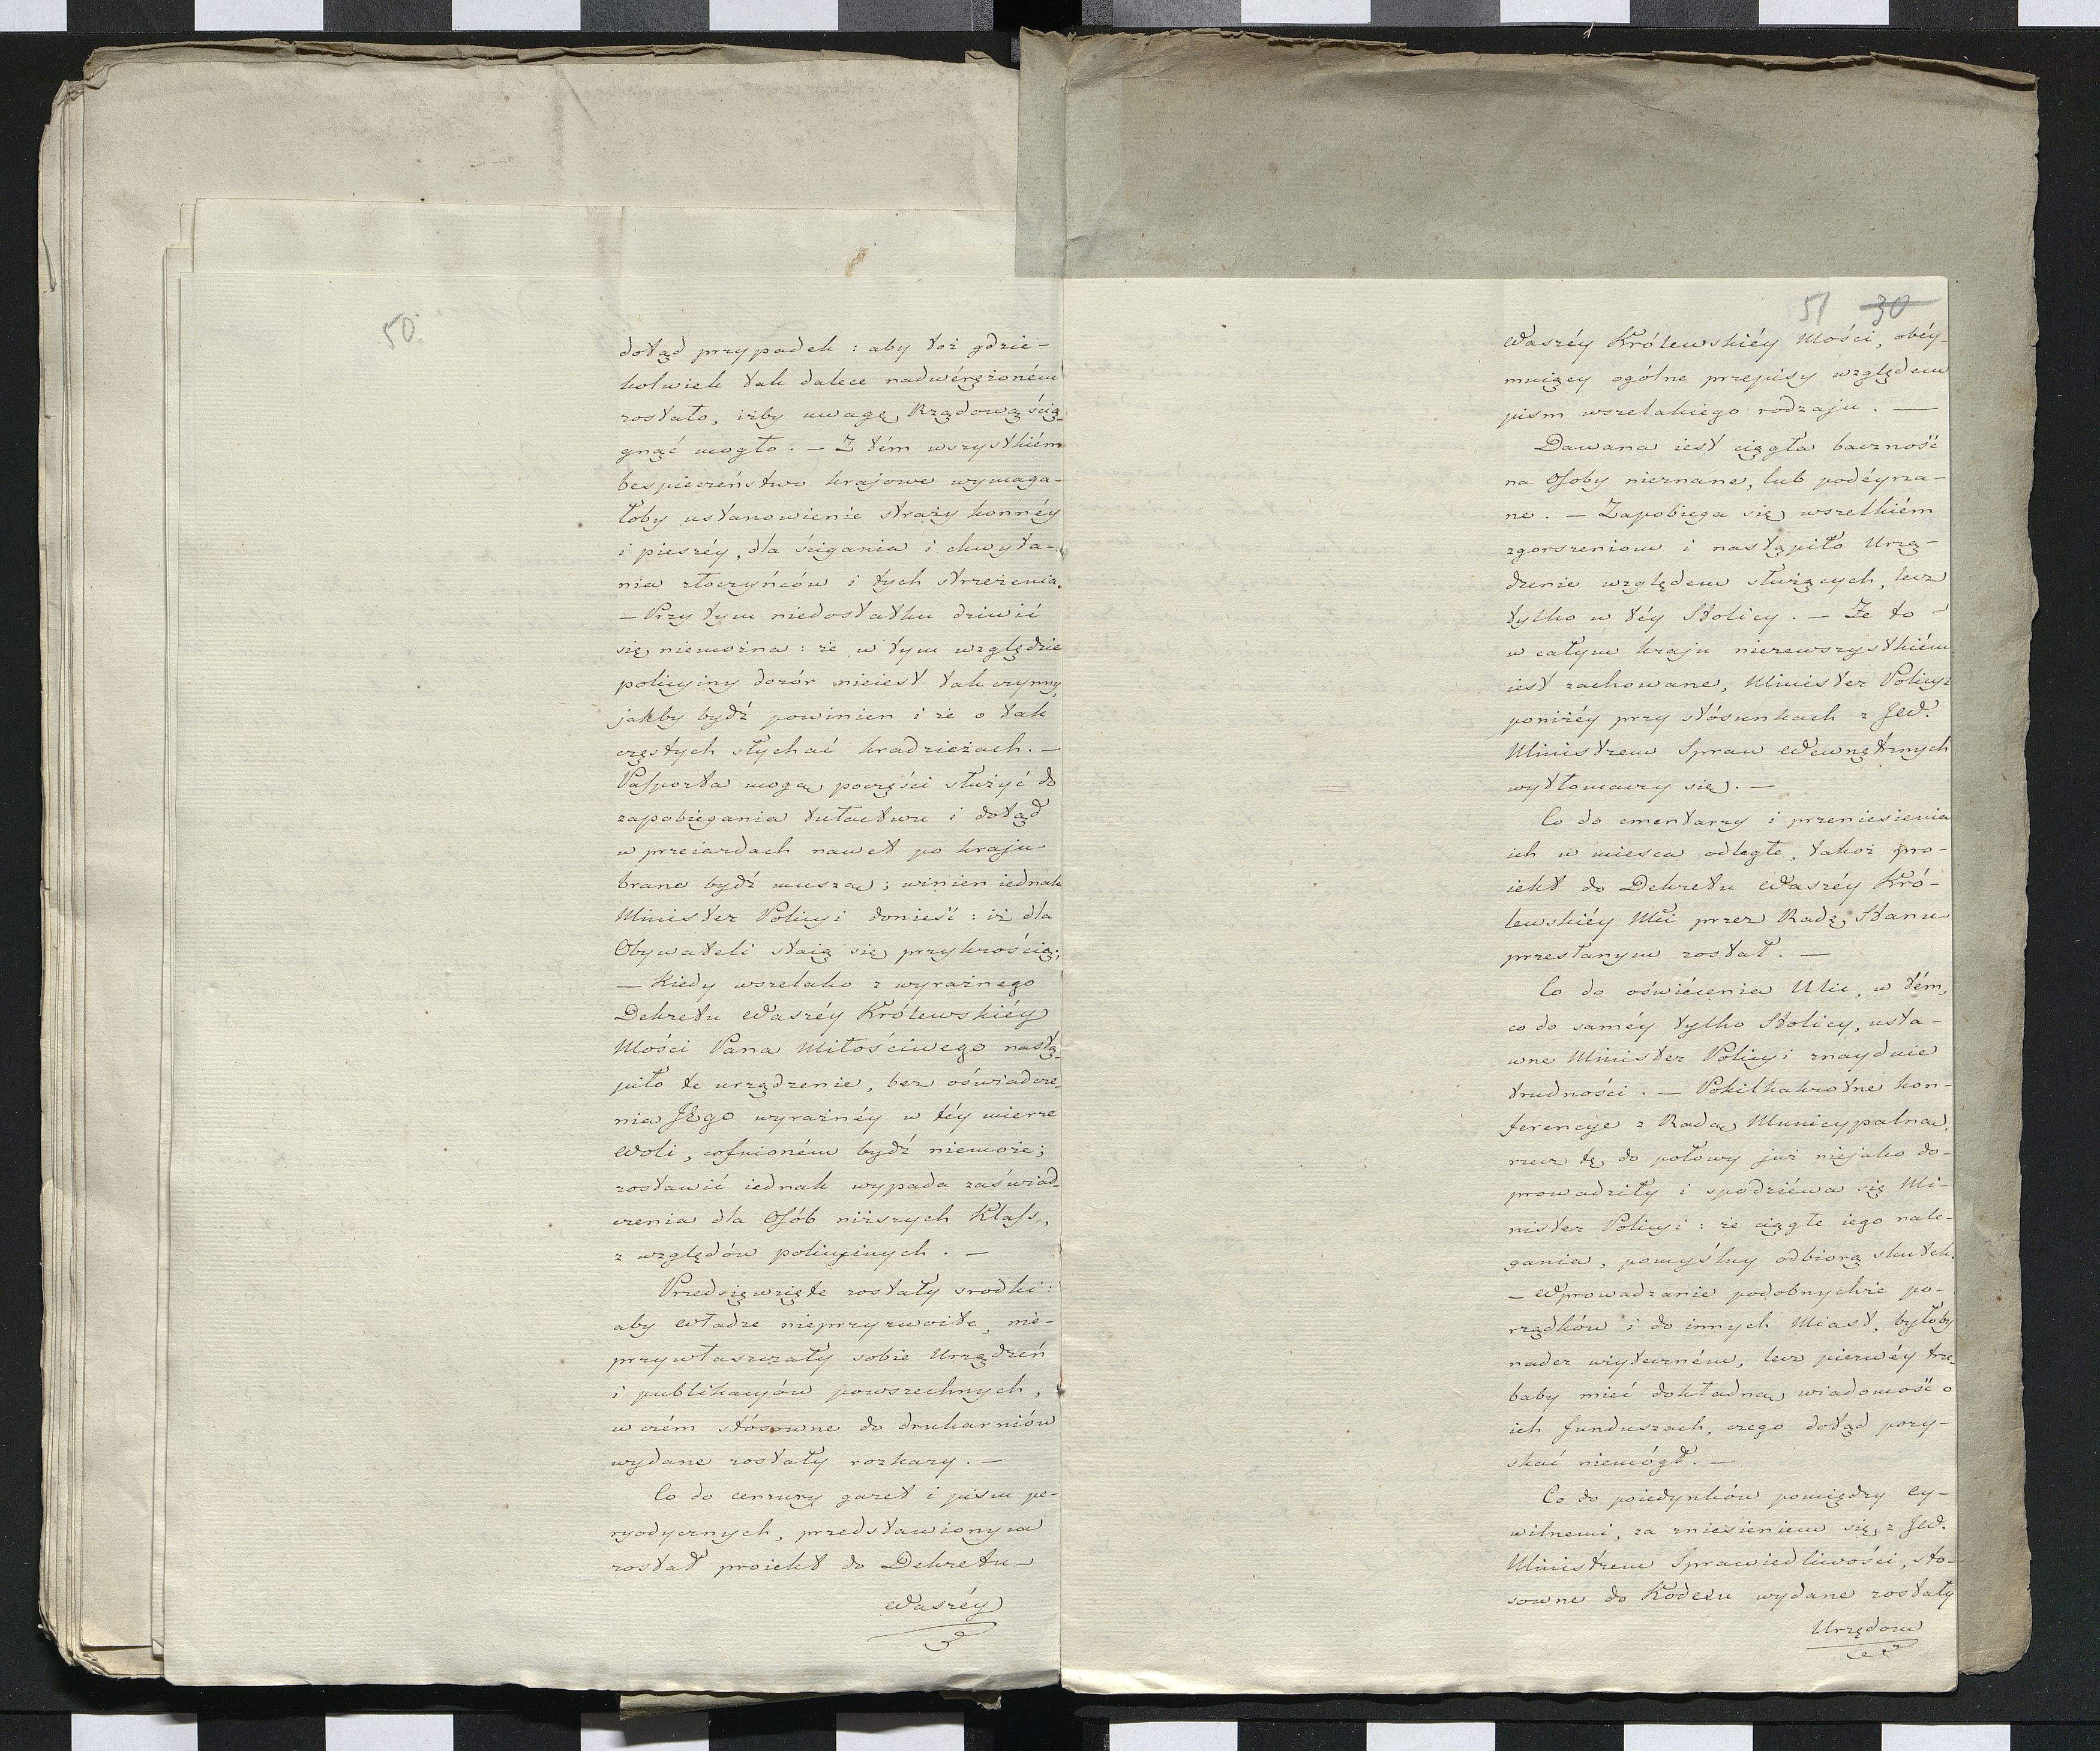 50.
dotąd przypadek : aby toż gdzie-
kolwiek tak dalece nadwérężoném
zostało, iżby uwagę Rządową ścią-
gnąć mogło. — Z tém wszystkiém
bespieczeństwo krajowe wymaga-
łoby ustanowienie straży konnéy
i pieszéy, dla ścigania i chwyta-
nia złoczyńców i tych strzeżenia.
— Przy tym niedostatku dziwić
się niemożna : że w tym względzie
policyiny dozór nieiest tak czynny,
jakby bydź powinien i że o tak
częstych słychać kradzieżach. —
Pasporta mogą poczęści służyć do
zapobiegania tułactwu i dotąd
w przeiazdach nawet po kraju
brane bydź muszą; winien iednak
Minister Policyi donieść : iż dla
Obywateli staią się przykrością;
— Kiedy wszelako z wyraźnego
Dekretu Waszéy Królewskiéy
Mości Pana Miłościwego nastą-
piło te urządzenie, bez oświadcze-
nia JEgo wyraźnéy w téy mierze
Woli, cofnioném bydź niemoże;
zostawić iednak wypada zaświad-
czenia dla Osób niższych Klass,
z względów policyinych. —
Przedsięwzięte zostały srodki :
aby Władze nieprzyzwoite, nie-
przywłaszczały sobie Urządzeń
i publikacyów powszechnych,
w czém stósowne do drukarniów
wydane zostały rozkazy. —
Co do cenzury gazet i pism pe-
ryodycznych, przedstawionym
został proiekt do Dekretu
Waszéy
51 30
Waszéy Królewskiéy Mości, obéy-
muiący ogólne przepisy względem
pism wszelakiego rodzaju. —
Dawana iest ciągła baczność
na Osoby nieznane, lub podéyrza-
ne. — Zapobiega się wszelkiém
zgorszeniom i nastąpiło Urzą-
dzenie względem służących, lecz
tylko w téy Stolicy. — Że to
w całym kraju niezewszystkiém
iest zachowane, Minister Policyi
poniżéy przy stósunkach z JW.
Ministrem Spraw Wewnętrznych
wytłomaczy się. —
Co do cmentarzy i przeniesienia
ich w miesca odległe, takoż pro-
iekt do Dekretu Waszéy Kró-
lewskiéy Mci przez Radę Stanu
przesłanym został. —
Co do oświécenia Ulic, w tém,
co do saméy tylko Stolicy, usta-
wne Minister Policyi znayduie
trudności. — Pokilkakrotne kon-
ferencye z Radą Municypalną,
rzecz tę do połowy już niejako do-
prowadziły i spodziéwa się Mi-
nister Policyi : że ciągłe iego nale-
gania, pomyślny odbiorą skutek.
— Wprowadzanie podobnychże po-
rządków i do innych Miast, byłoby
nader użyteczném, lecz pierwéy trze-
baby mieć dokładną wiadomość o
ich funduszach, czego dotąd pozy-
skać niemógł. —
Co do poiedynków pomiędzy Cy-
wilnemi, za zniesieniem się z JW.
Ministrem Sprawiedliwości, sto-
sowne do Kodexu wydane zostały
Urzędom